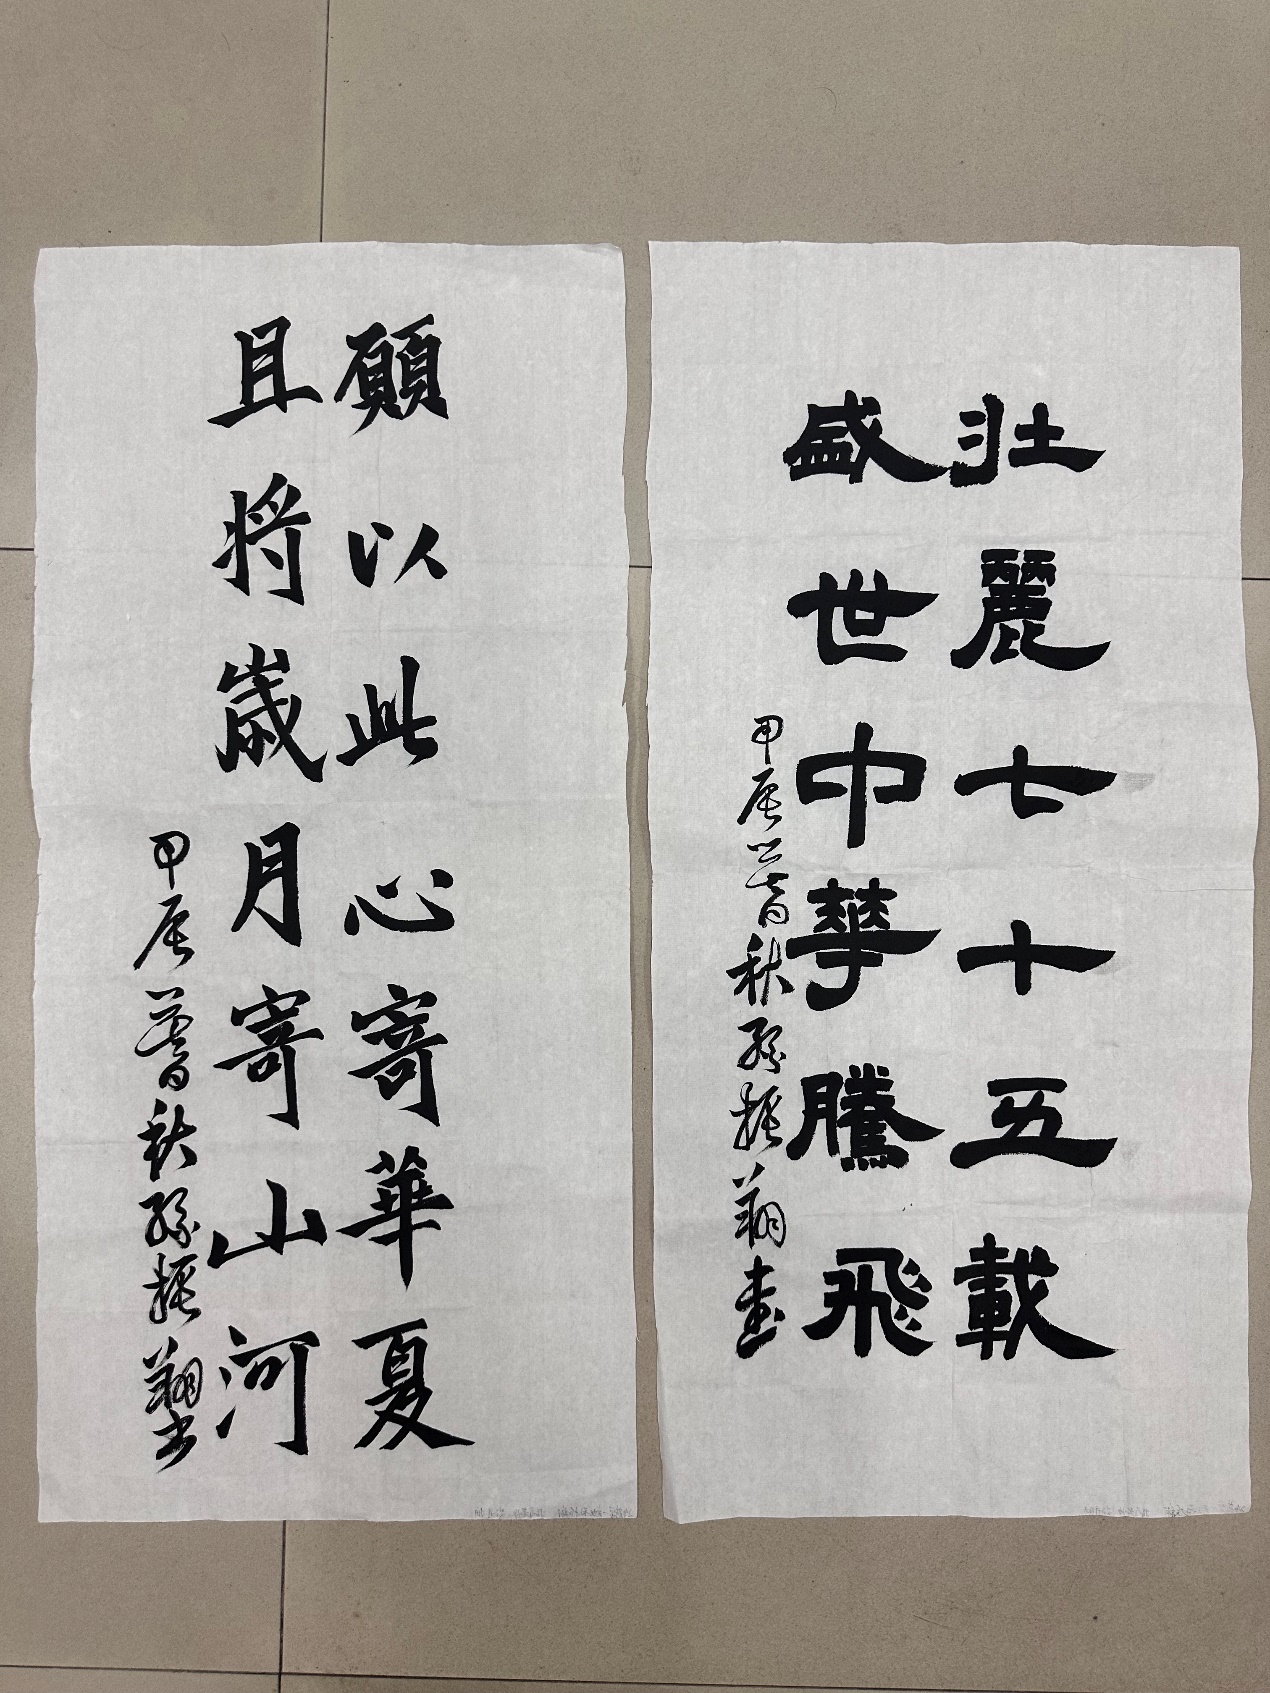 壯麗七十五載
盛世中華騰飛
甲辰暮秋孫振翔書
願以此心寄華夏
且將歲月寄山河
甲辰暮秋孫振翔書